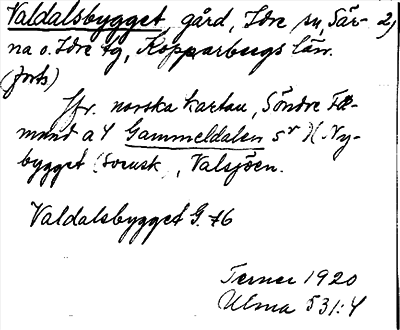 Valdalsbygget gård, Idre sn, Sär- 2)
na o. Idre tg, Kopparbergs län.
(forts)
Jfr. norska kartan, Söndre Fæ-
mund a 4 Gammeldalen sr )( Ny-
bygget (Svensk), Valsjöen.
Valdalsbygget G. 76
Terner 1920
Ulma 531:4